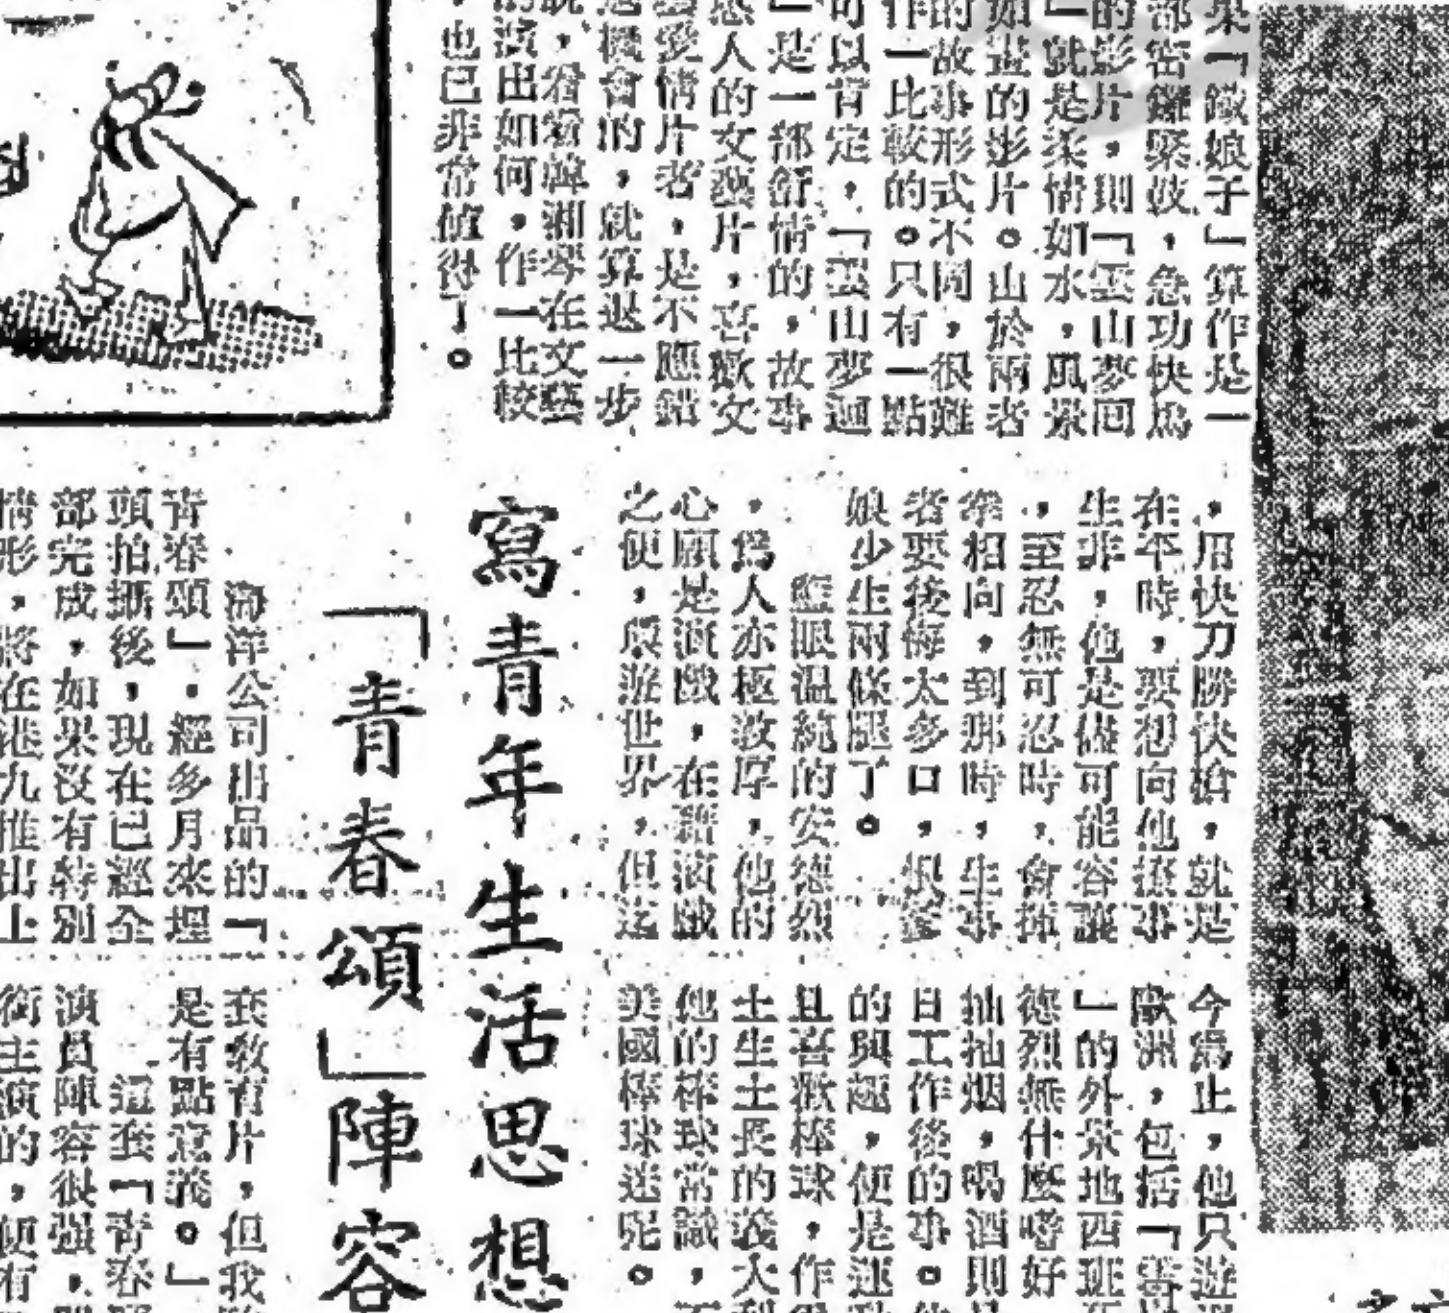 果「鐵娘子」算作是一
部密鑼緊鼓，急功快馬
的影片，則「雲山夢囘
」就是柔情如水，風景
如畫的影片。山於兩者
的故事形式不同，很難
作一比較的。只有一點
可以肯定，「雲山夢迴
」是一部舒情的，故事
感人的文藝片，喜歡文
愛情片者，是不應錯
機會的，就算退一步
說，看霜湘琴在文藝
的演出如何，作一比較
，也已非常値得了。
，用快刀勝快搶，就是
在平時，要想向他撩事
生非，他是儘可能容讓
，至忍無可忍時，會揮
拳相向，到那時，生事
者要後悔太多口，恨爹
娘少生兩條腿了。
藍眼温純的安德烈
，爲人亦極敦厚，他的
心願是演戲，在藉演戲
之便，底游世界，但迄
今爲止，他只遊
歐洲，包括「
」的外景地西班
德烈無什麼嗜好
抽抽烟，喝酒則
日工作後的事。
的興趣，便是運
且喜歡棒球，作
土生土長的義大
他的棒球常識，
美國棒球迷呢。
寫青年生活思想
「青春頌」陣容
海洋公司出品的「
青春頌」，經多月來埋
頭拍攝後，現在已經全
部完成，如果沒有特別
情形，將在港九推出上
套敎育片，但我
是有點意義。」
這套「青春
演員陣容很强，
主演的，便有